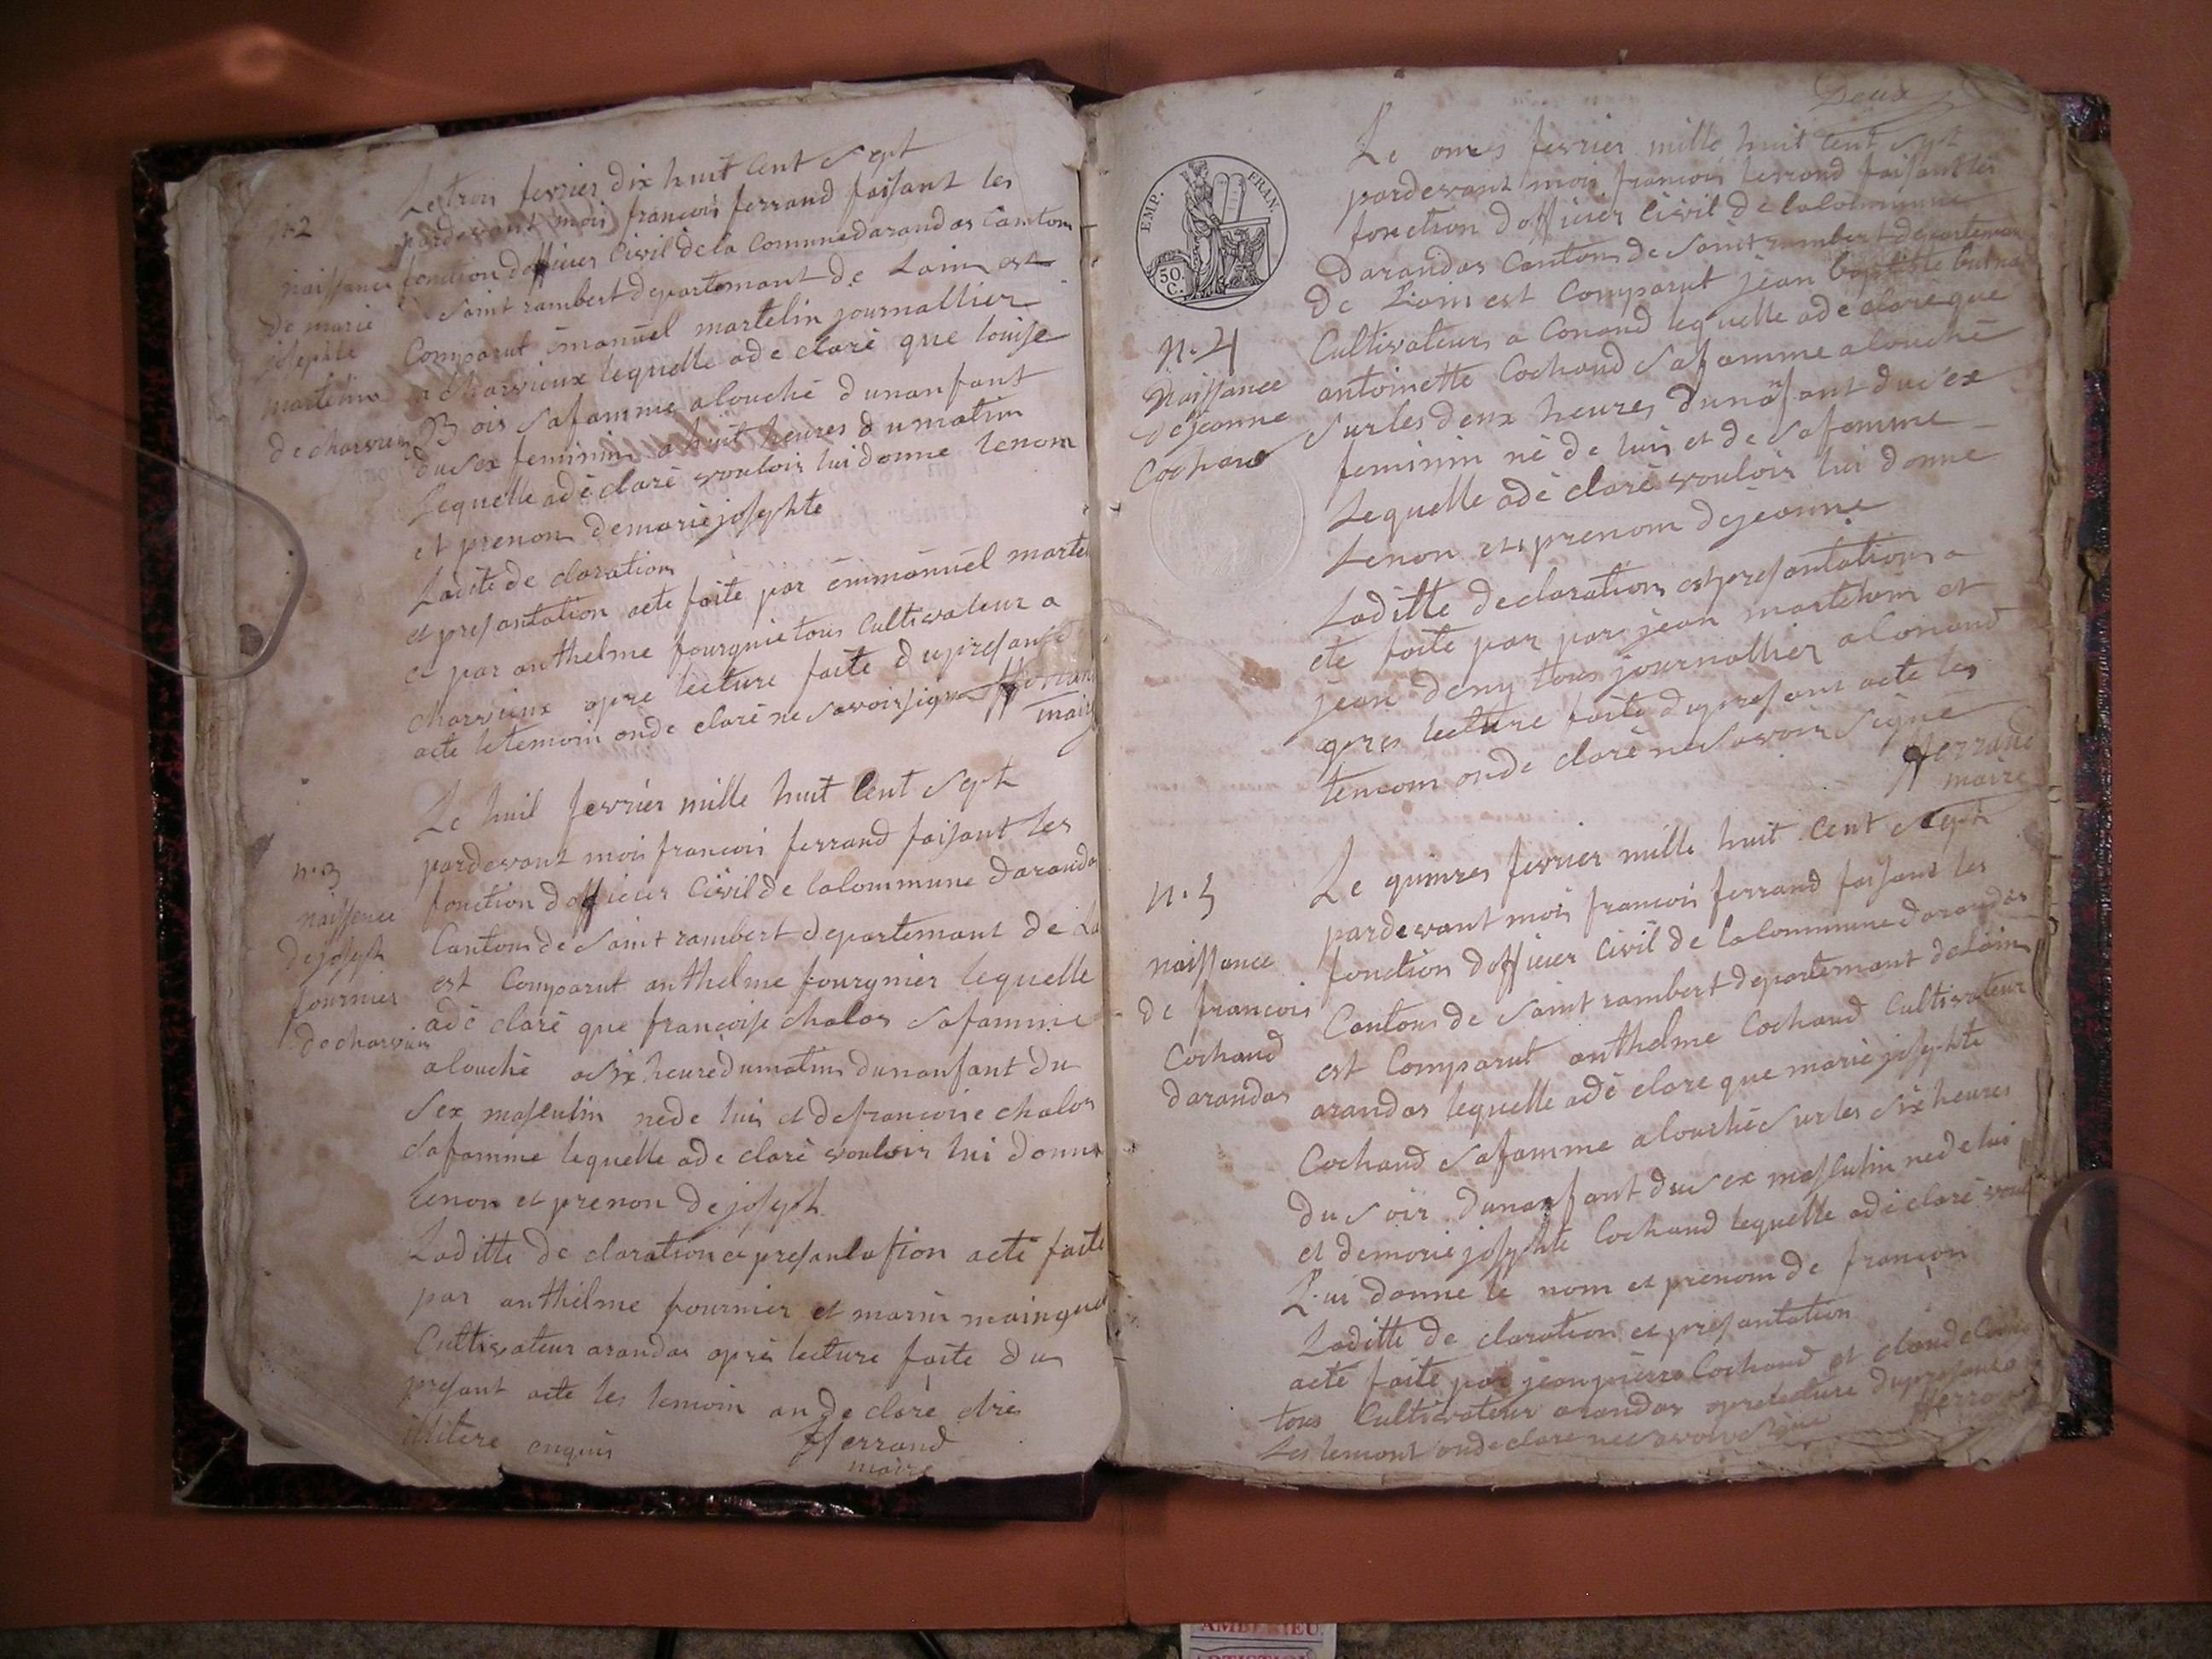 n.2
naissance
de marie
josephte
martelin
de charvieux
Le trois fevrier dix huit Cent Sept
pardevant moi francois ferrand faisant les
fonction dofficier Civil de la Commune darandas Canton
de Saint rambert departemant de Lain est
Comparut émanuel martelin journallier
a charvieux lequelle adé claré que louise
Bois Safamme alouché dunanfant
du Sex feminin a huit heures du matin
Lequelle adé claré vouloir lui donne lenom
et prenon demarie josephte
Ladite de claration
et presantation aete faite par émmanuel marte
et par anthelme fourgnie tous Cultivateur a
charvieux apre lecture faite du presant
acte le temoin onde claré ne Savoir signe fferrand
maire
n.3
naissance
de joseph
fournier
de charvieux
Le huit fevrier mille huit Cent Sept
pardevant moi francois ferrand faisant les
fonction dofficier Civil de la Commune darandas
Canton de Saint rambert departemant de La
est Comparut anthelme fourgnier lequelle
adé claré que françoise chalos Safamme
alouché a Six heure du matin dunanfant du
Sex masculin né de lui et de francoise chalos
Safamme lequelle adé claré vouloir lui donne
Lenon et prenon de joseph
Laditte de claration et presantation aeté faite
par anthelme fournier et marin mainguet
Cultivateur arandas apré lecture faite du
presant acte les temoin an de claré etre
illitere enquis fferrand
maire
Deux
EMP. FRAN.
50.
C.
n.4
Naissance
de jeanne
Cochand
Le onzes fevrier mille huit Cent Sept
pardevant moi francois ferrand faisant les
fonction dofficier Civil de la Commune
darandas Canton de Saint rambert departeman
de Lain est Comparut jean baptiste
Cultivateur a Conand lequelle adé claré que
antoinette Cochand Safamme alouché
Sur les deux heures dunanfant du Sex
feminin né de lui et de Safamme
Lequelle adé claré vouloir lui donne
Lenon et prenom de jeanne
Laditte declaration et presantation a
ete faite par par jean martelin et
jean deny tous journallier a Conand
apres lecture faite du presant acte les
temoin onde claré ne Savoir Signe
fferrand
maire
n.5
naissance
de francois
Cochand
darandas
Le quinzes fevrier mille huit Cent Sept
pardevant moi francois ferrand faisant les
fonction dofficier Civil de la Commune darandas
Canton de Saint rambert departemant de Lain
est Comparut anthelme Cochand Cultivateur
arandas lequelle adé claré que marie josephte
Cochand Safamme alouché Sur les Six heures
du Soir dunanfant du Sex masculin né de lui
et de marie josephte Cochand lequelle adé claré voul
Lui donne le nom et prenom de françois
Laditte de claration et presantation
aeté faite par jean pierre Cochand et claude
tous Cultivateur arandas apre lecture du presant a
Les temoint onde claré ne Savoir Signe fferrand